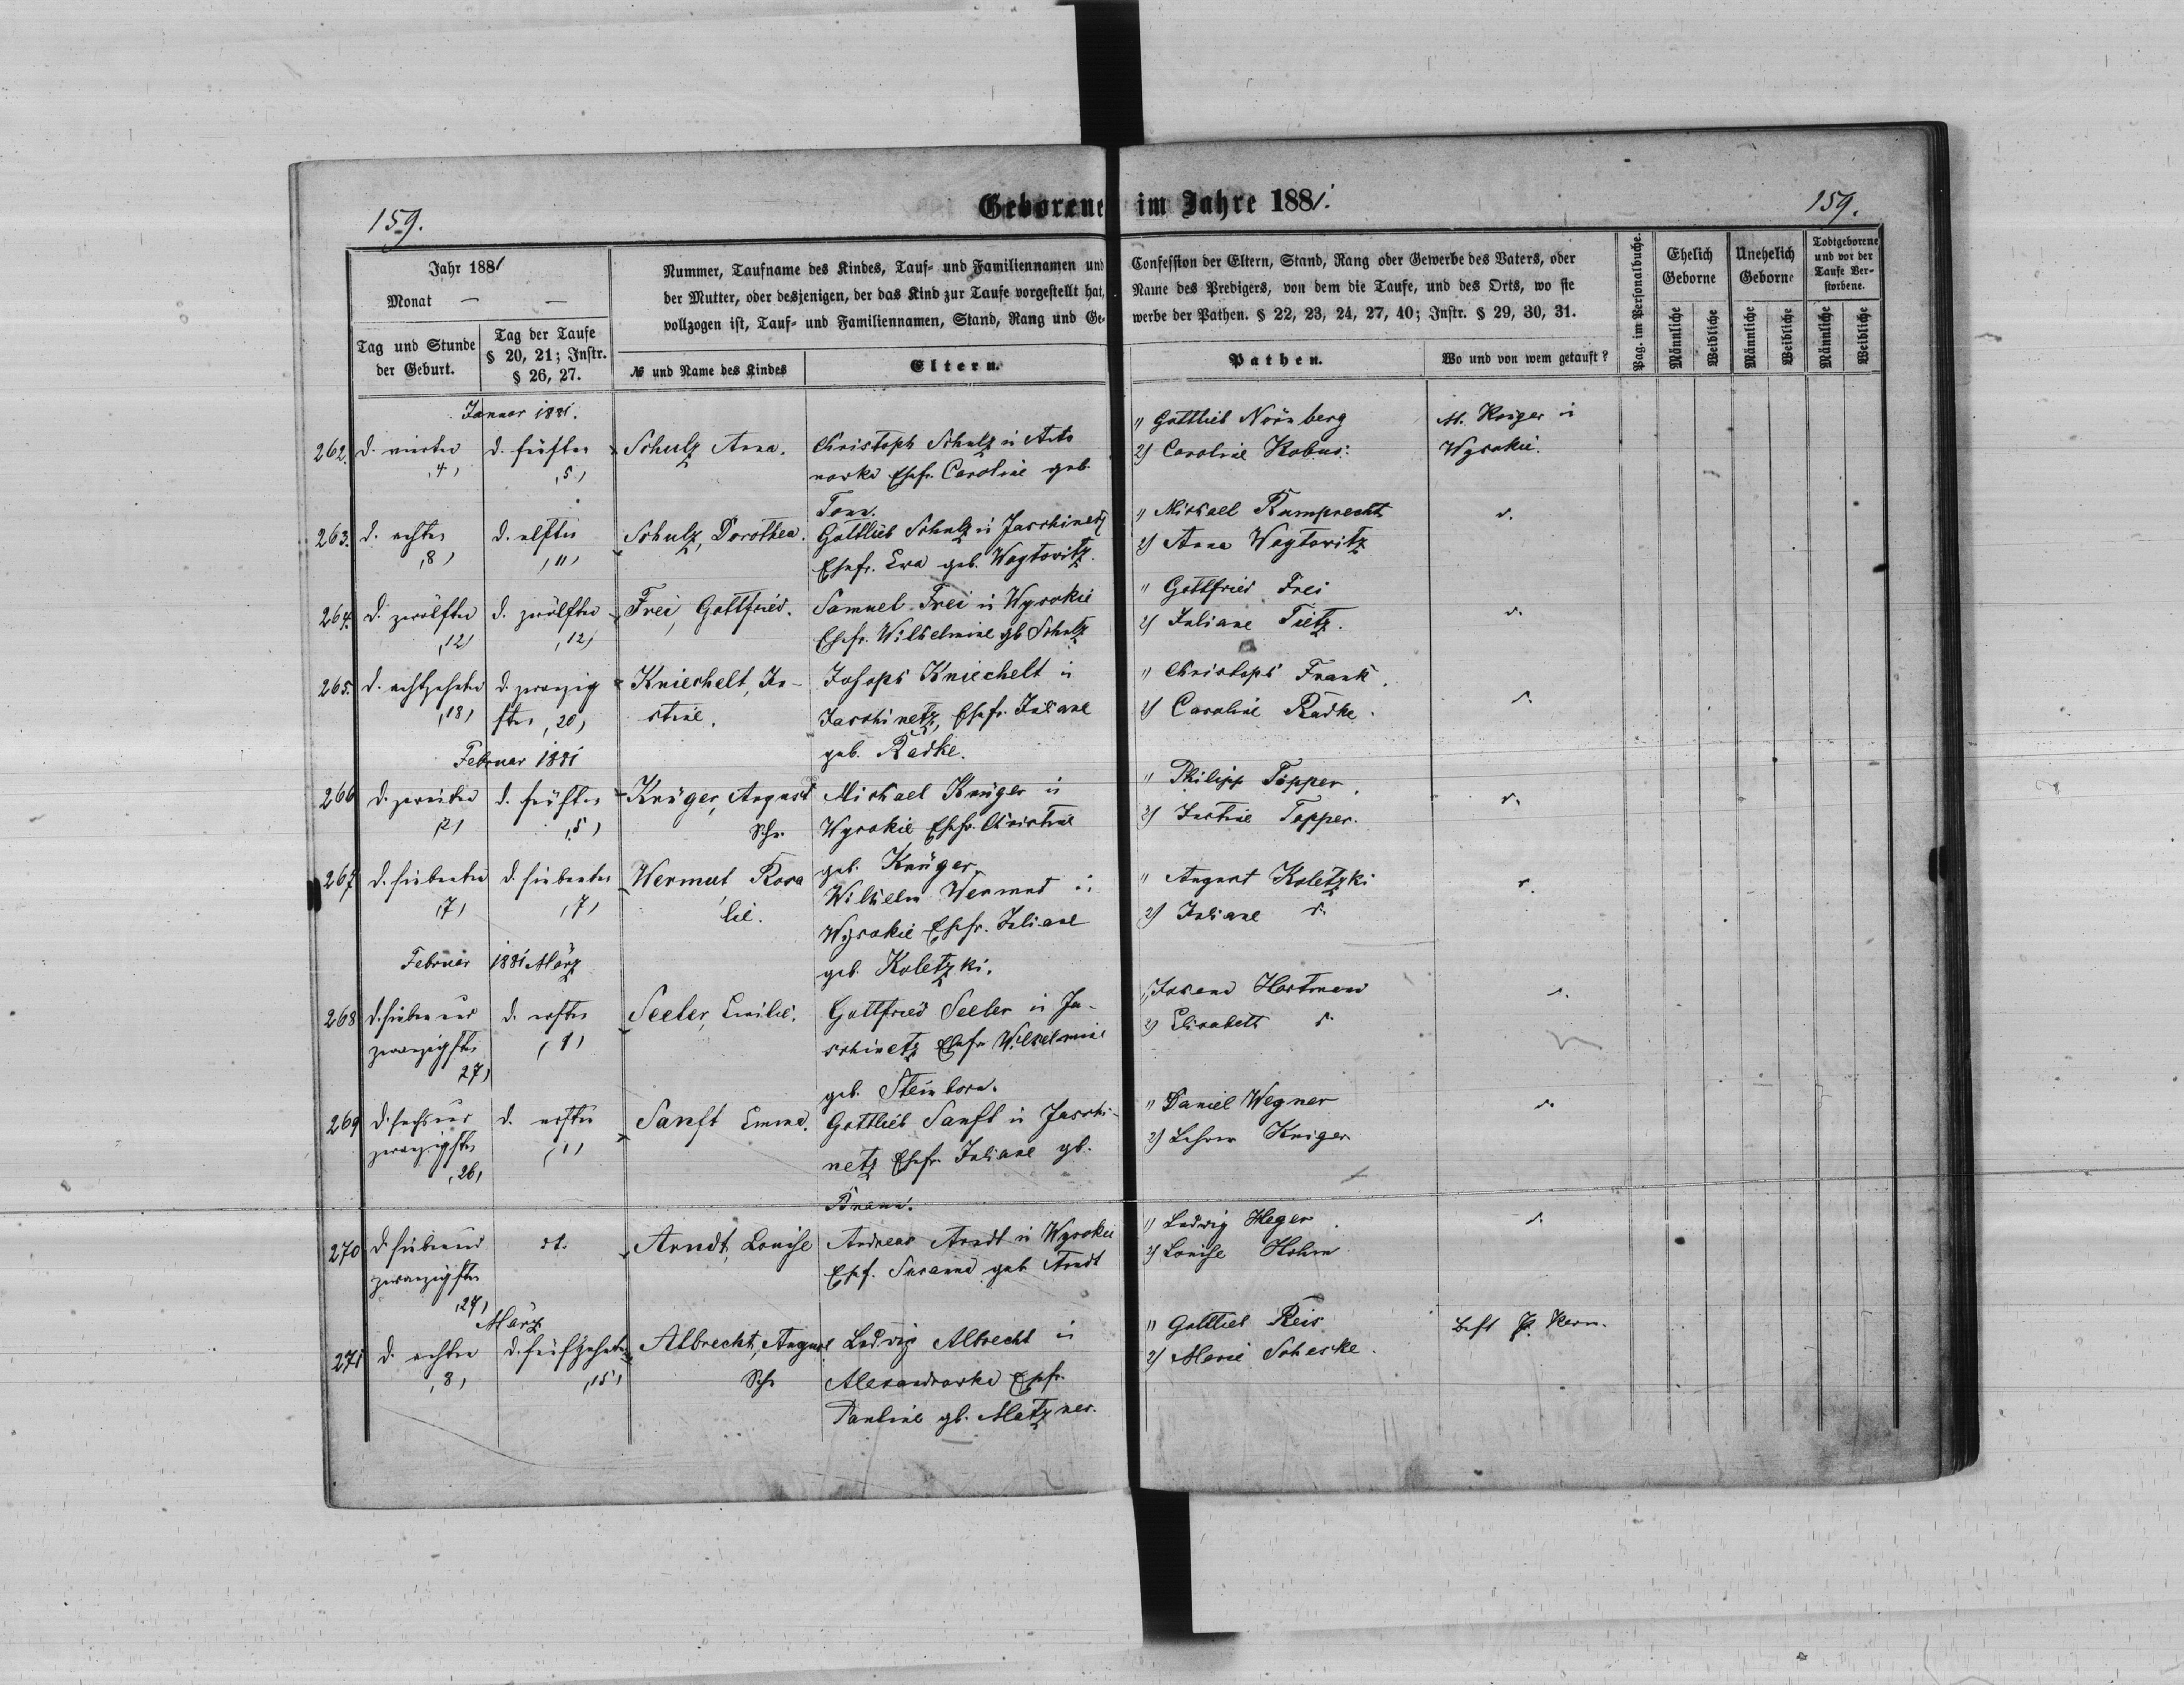 159.
Geborene im Jahre 1881.
159.
Jahr 1881
Monat — —
Tag und Stunde der Geburt.
Tag der Taufe § 20, 21; Instr. § 26, 27.
Nummer, Taufname des Kindes, Tauf- und Familiennamen und
der Mutter, oder desjenigen, der das Kind zur Taufe vorgestellt hat,
vollzogen ist, Tauf- und Familiennamen, Stand, Rang und Ge-
№ und Name des Kindes
Eltern.
Confession der Eltern, Stand, Rang oder Gewerbe des Vaters, oder
Name des Predigers, von dem die Taufe, und des Orts, wo sie
werbe der Pathen. § 22, 23, 24, 27, 40; Instr. § 29, 30, 31.
Pathen.
Wo und von wem getauft?
Pag. im Personalbuche.
Ehelich Geborne
Unehelich Geborne
Todtgeborene und vor der Taufe Verstorbene.
Männliche
Weibliche
Männliche
Weibliche
Männliche
Weibliche
Januar 1881.
262. d. vierten ,4, d. fünften ,5, Schulz Anna.
Christoph Schulz in
nowka Ehefr. Caroline geb.
Tonn.
1) Gottlieb Nörnberg
2) Caroline Kobus.
M. Krüger in
Wysokie.
263. d. achten ,8, d. elften ,11, Schulz, Dorothea.
Gottlieb Schulz in Jaschinetz
Ehefr. Eva geb. Wogtowitz.
1) Michael Rumprecht
2) Anna Wogtowitz
d.
264. d. zwölften ,12, d. zwölften ,12, Frei, Gottfried.
Samuel Frei in Wysokie
Ehefr. Wilhelmine gb Schulz
1) Gottfried Frei
2) Juliane Tietz.
d.
265. d. achtzehnten ,18, d. zwanzig
sten ,20,
Kniechelt, Ju-
stine.
Joseph Kniechelt in
Jaschinetz, Ehefr. Juliane
geb. Radke.
1) Christoph Frank.
2) Caroline Radke.
d.
Februar 1881
266 d. zweiten ,2, d. fünften ,5, Krüger, August
Michael Krüger in
Wysokie Ehefr. Christine
geb. Krüger.
1) Philipp Töpper.
2) Justine Topper.
d.
267 d. siebenten ,7, d. siebenten ,7, Wermut, Rosa
lie.
Wilhelm Wermut in
Wysokie Ehefr. Juliane
geb. Koletzki.
1) August Koletzki
2) Juliane d.
d.
Februar 1881 März
268 d. sieben und
zwanzigsten
27,
d. ersten ,1, Seeler, Emilie.
Gottfried Seeler in Ja-
schinetz Ehefr. Wilhelmine
geb. Steinborn.
1) Johann Hartmann
2) Elisabeth d.
d.
269 d. sechs und
zwanzigsten
,26,
d. ersten ,1, Sanft Emma.
Gottlieb Sanft in Jaschi-
netz Ehefr. Juliane gb.
1) Daniel Wegner
2) Lehrer Krüger
d.
270 d. sieben und
zwanzigsten
,27,
dt. Arndt, Louise
Andreas Arndt in Wysokie
Ehef. Susanna geb. Arndt
1) Ludwig Heger.
2) Louise Hohm.
d.
März
271 d. achten ,8, d. fünfzehnten ,15, Albrecht, August
Ludwig Albrecht in
Alexandrowka Ehefr.
Pauline gb. Metzner.
1) Gottlieb Reis
2) Marie Scheske.
P. Kern.